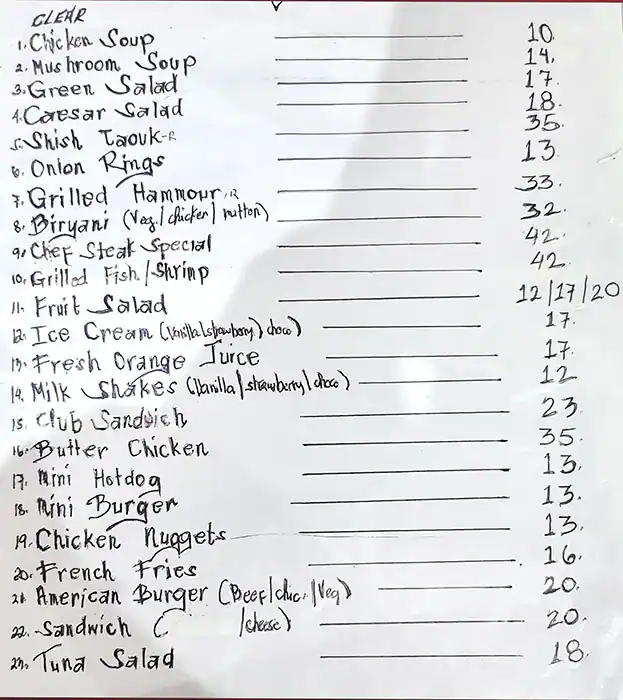 CLEAR
1. Chicken Soup 10.
2. Mushroom Soup 14.
3. Green Salad 17.
4. Caesar Salad 18.
5. Shish Taouk-R 35.
6. Onion Rings 13.
7. Grilled Hammour.R 33.
8. Biryani (Veg./chicken/mutton) 32.
9. Chef Steak Special 42.
10. Grilled Fish/Shrimp 42.
11. Fruit Salad 12/17/20
12. Ice Cream (Vanilla/strawberry/choco) 17.
13. Fresh Orange Juice 17.
14. Milk Shakes (Vanilla/strawberry/choco) 12
15. Club Sandwich 23.
16. Butter Chicken 35.
17. Mini Hotdog 13.
18. Mini Burger 13.
19. Chicken Nuggets 13.
20. French Fries 16.
21. American Burger (Beef/chic./Veg) 20.
22. Sandwich ( /cheese) 20.
23. Tuna Salad 18.